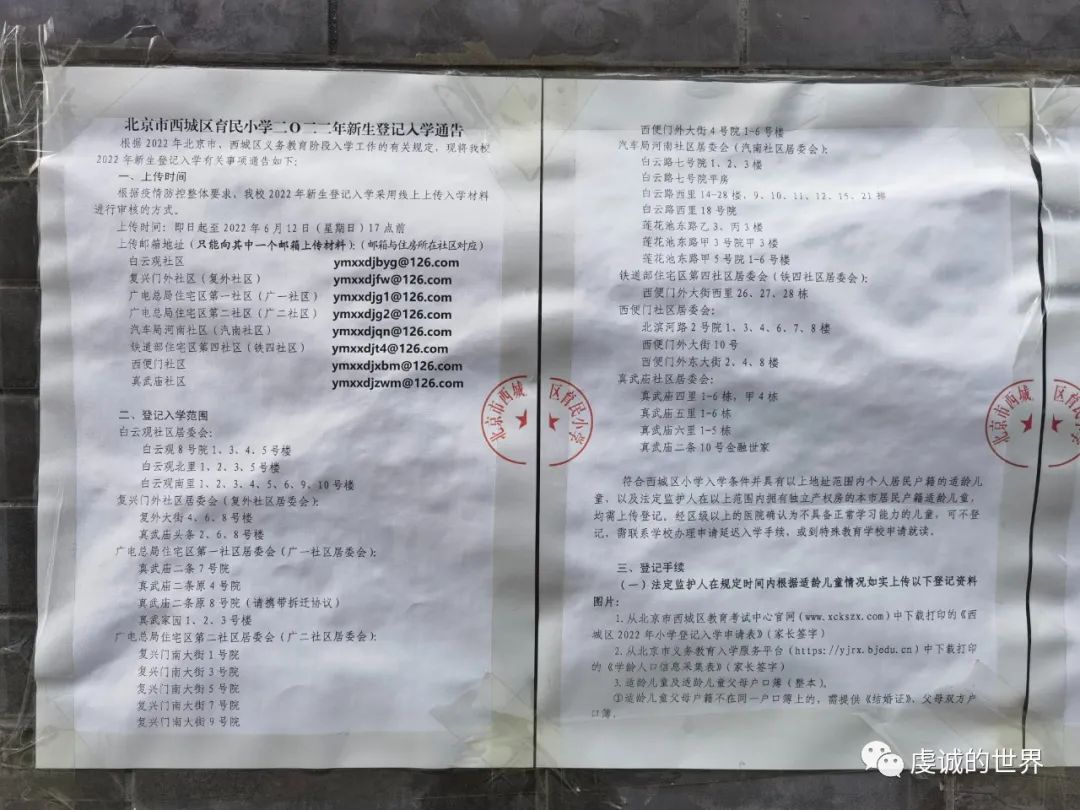 北京市西城区育民小学二〇二二年新生登记入学通告
根据 2022 年北京市、西城区义务教育阶段入学工作的有关规定，现将我校
2022 年新生登记入学有关事项通告如下：
一、上传时间
根据疫情防控整体要求，我校 2022 年新生登记入学采用线上上传入学材料
进行审核的方式。
上传时间：即日起至 2022 年 6 月 12 日（星期日）17 点前
上传邮箱地址（只能向其中一个邮箱上传材料）：（邮箱与住房所在社区对应）
白云观社区 ymxxdjbyg@126.com
复兴门外社区（复外社区） ymxxdjfw@126.com
广电总局住宅区第一社区（广一社区） ymxxdjg1@126.com
广电总局住宅区第二社区（广二社区） ymxxdjg2@126.com
汽车局河南社区（汽南社区） ymxxdjqn@126.com
铁道部住宅区第四社区（铁四社区） ymxxdjt4@126.com
西便门社区 ymxxdjxbm@126.com
真武庙社区 ymxxdjzwm@126.com
二、登记入学范围
白云观社区居委会：
白云观 8 号院 1、3、4、5 号楼
白云观北里 1、2、3、5 号楼
白云观南里 1、2、3、4、5、6、9、10 号楼
复兴门外社区居委会（复外社区居委会）：
复外大街 4、6、8 号楼
真武庙头条 2、6、8 号楼
广电总局住宅区第一社区居委会（广一社区居委会）：
真武庙二条 7 号院
真武庙二条原 4 号院
真武庙二条原 8 号院（请携带拆迁协议）
真武家园 1、2、3 号楼
广电总局住宅区第二社区居委会（广二社区居委会）：
复兴门南大街 1 号院
复兴门南大街 3 号院
复兴门南大街 5 号院
复兴门南大街 7 号院
复兴门南大街 9 号院
北京市西城区育民小学
西便门外大街 4 号院 1-6 号楼
汽车局河南社区居委会（汽南社区居委会）：
白云路七号院 1、2、3 楼
白云路七号院平房
白云路西里 14-28 楼，9、10、11、12、15、21 栋
白云路西里 18 号院
莲花池东路乙 3、丙 3 楼
莲花池东路甲 3 号院甲 3 楼
莲花池东路甲 5 号院 1-6 号楼
铁道部住宅区第四社区居委会（铁四社区居委会）：
西便门外大街西里 26、27、28 栋
西便门社区居委会：
北滨河路 2 号院 1、3、4、6、7、8 楼
西便门外大街 10 号
西便门外东大街 2、4、8 楼
真武庙社区居委会：
真武庙四里 1-6 栋，甲 4 栋
真武庙五里 1-6 栋
真武庙六里 1-5 栋
真武庙二条 10 号金融世家
符合西城区小学入学条件并具有以上地址范围内个人居民户籍的适龄儿
童，以及法定监护人在以上范围内拥有独立产权房的本市居民户籍适龄儿童，
均需上传登记。经区级以上的医院确认为不具备正常学习能力的儿童，可不登
记，需联系学校办理申请延迟入学手续，或到特殊教育学校申请就读。
三、登记手续
（一）法定监护人在规定时间内根据适龄儿童情况如实上传以下登记资料
图片：
1.从北京市西城区教育考试中心官网（www.xckszx.com）中下载打印的《西
城区 2022 年小学登记入学申请表》（家长签字）
2.从北京市义务教育入学服务平台（https://yjrx.bjedu.cn）中下载打印
的《学龄人口信息采集表》（家长签字）
3.适龄儿童及适龄儿童父母户口簿（整本）。
①适龄儿童父母户籍不在同一户口簿上的，需提供《结婚证》、父母双方户
口簿。
北京市西城
区育民小学
虔诚的世界